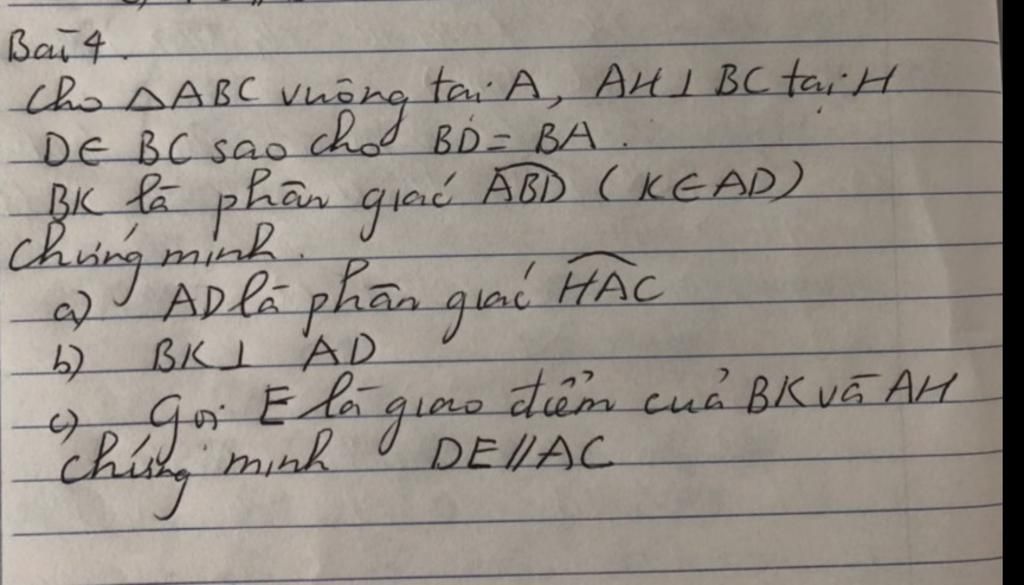 Bài 4.
Cho △ABC vuông tại A, AH⊥BC tại H
D∈ BC sao cho BD = BA.
BK là phân giác \widehat{ABD} (K∈AD)
Chứng minh.
a) AD là phân giác \widehat{HAC}
b) BK⊥ AD
c) Gọi E là giao điểm của BK và AH
Chứng minh DE//AC